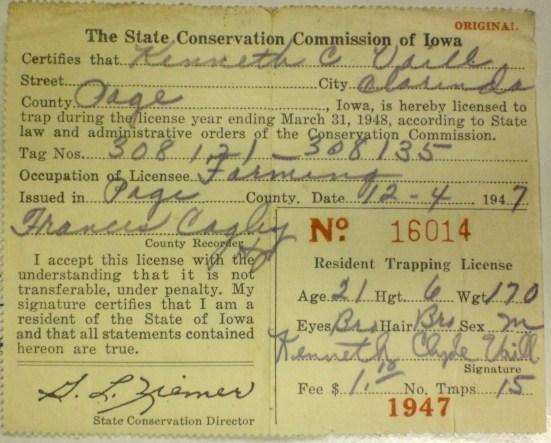 ORIGINAL
The State Conservation Commission of Iowa
Certifies that Kenneth C Vaill
Street City Clarinda
County Page, Iowa, is hereby licensed to
trap during the license year ending March 31, 1948, according to State
law and administrative orders of the Conservation Commission.
Tag Nos. 308121 - 308135
Occupation of Licensee Farming
Issued in Page County. Date 12-4 1947
Frances Cagley
County Recorder
I accept this license with the
understanding that it is not
transferable, under penalty. My
signature certifies that I am a
resident of the State of Iowa
and that all statements contained
hereon are true.
State Conservation Director
No 16014
Resident Trapping License
Age 21 Hgt. 6 Wgt. 170
Eyes Bro Hair Bro Sex m
Kenneth Clyde Vaill
Signature
Fee $ 1.10 No. Traps 15
1947